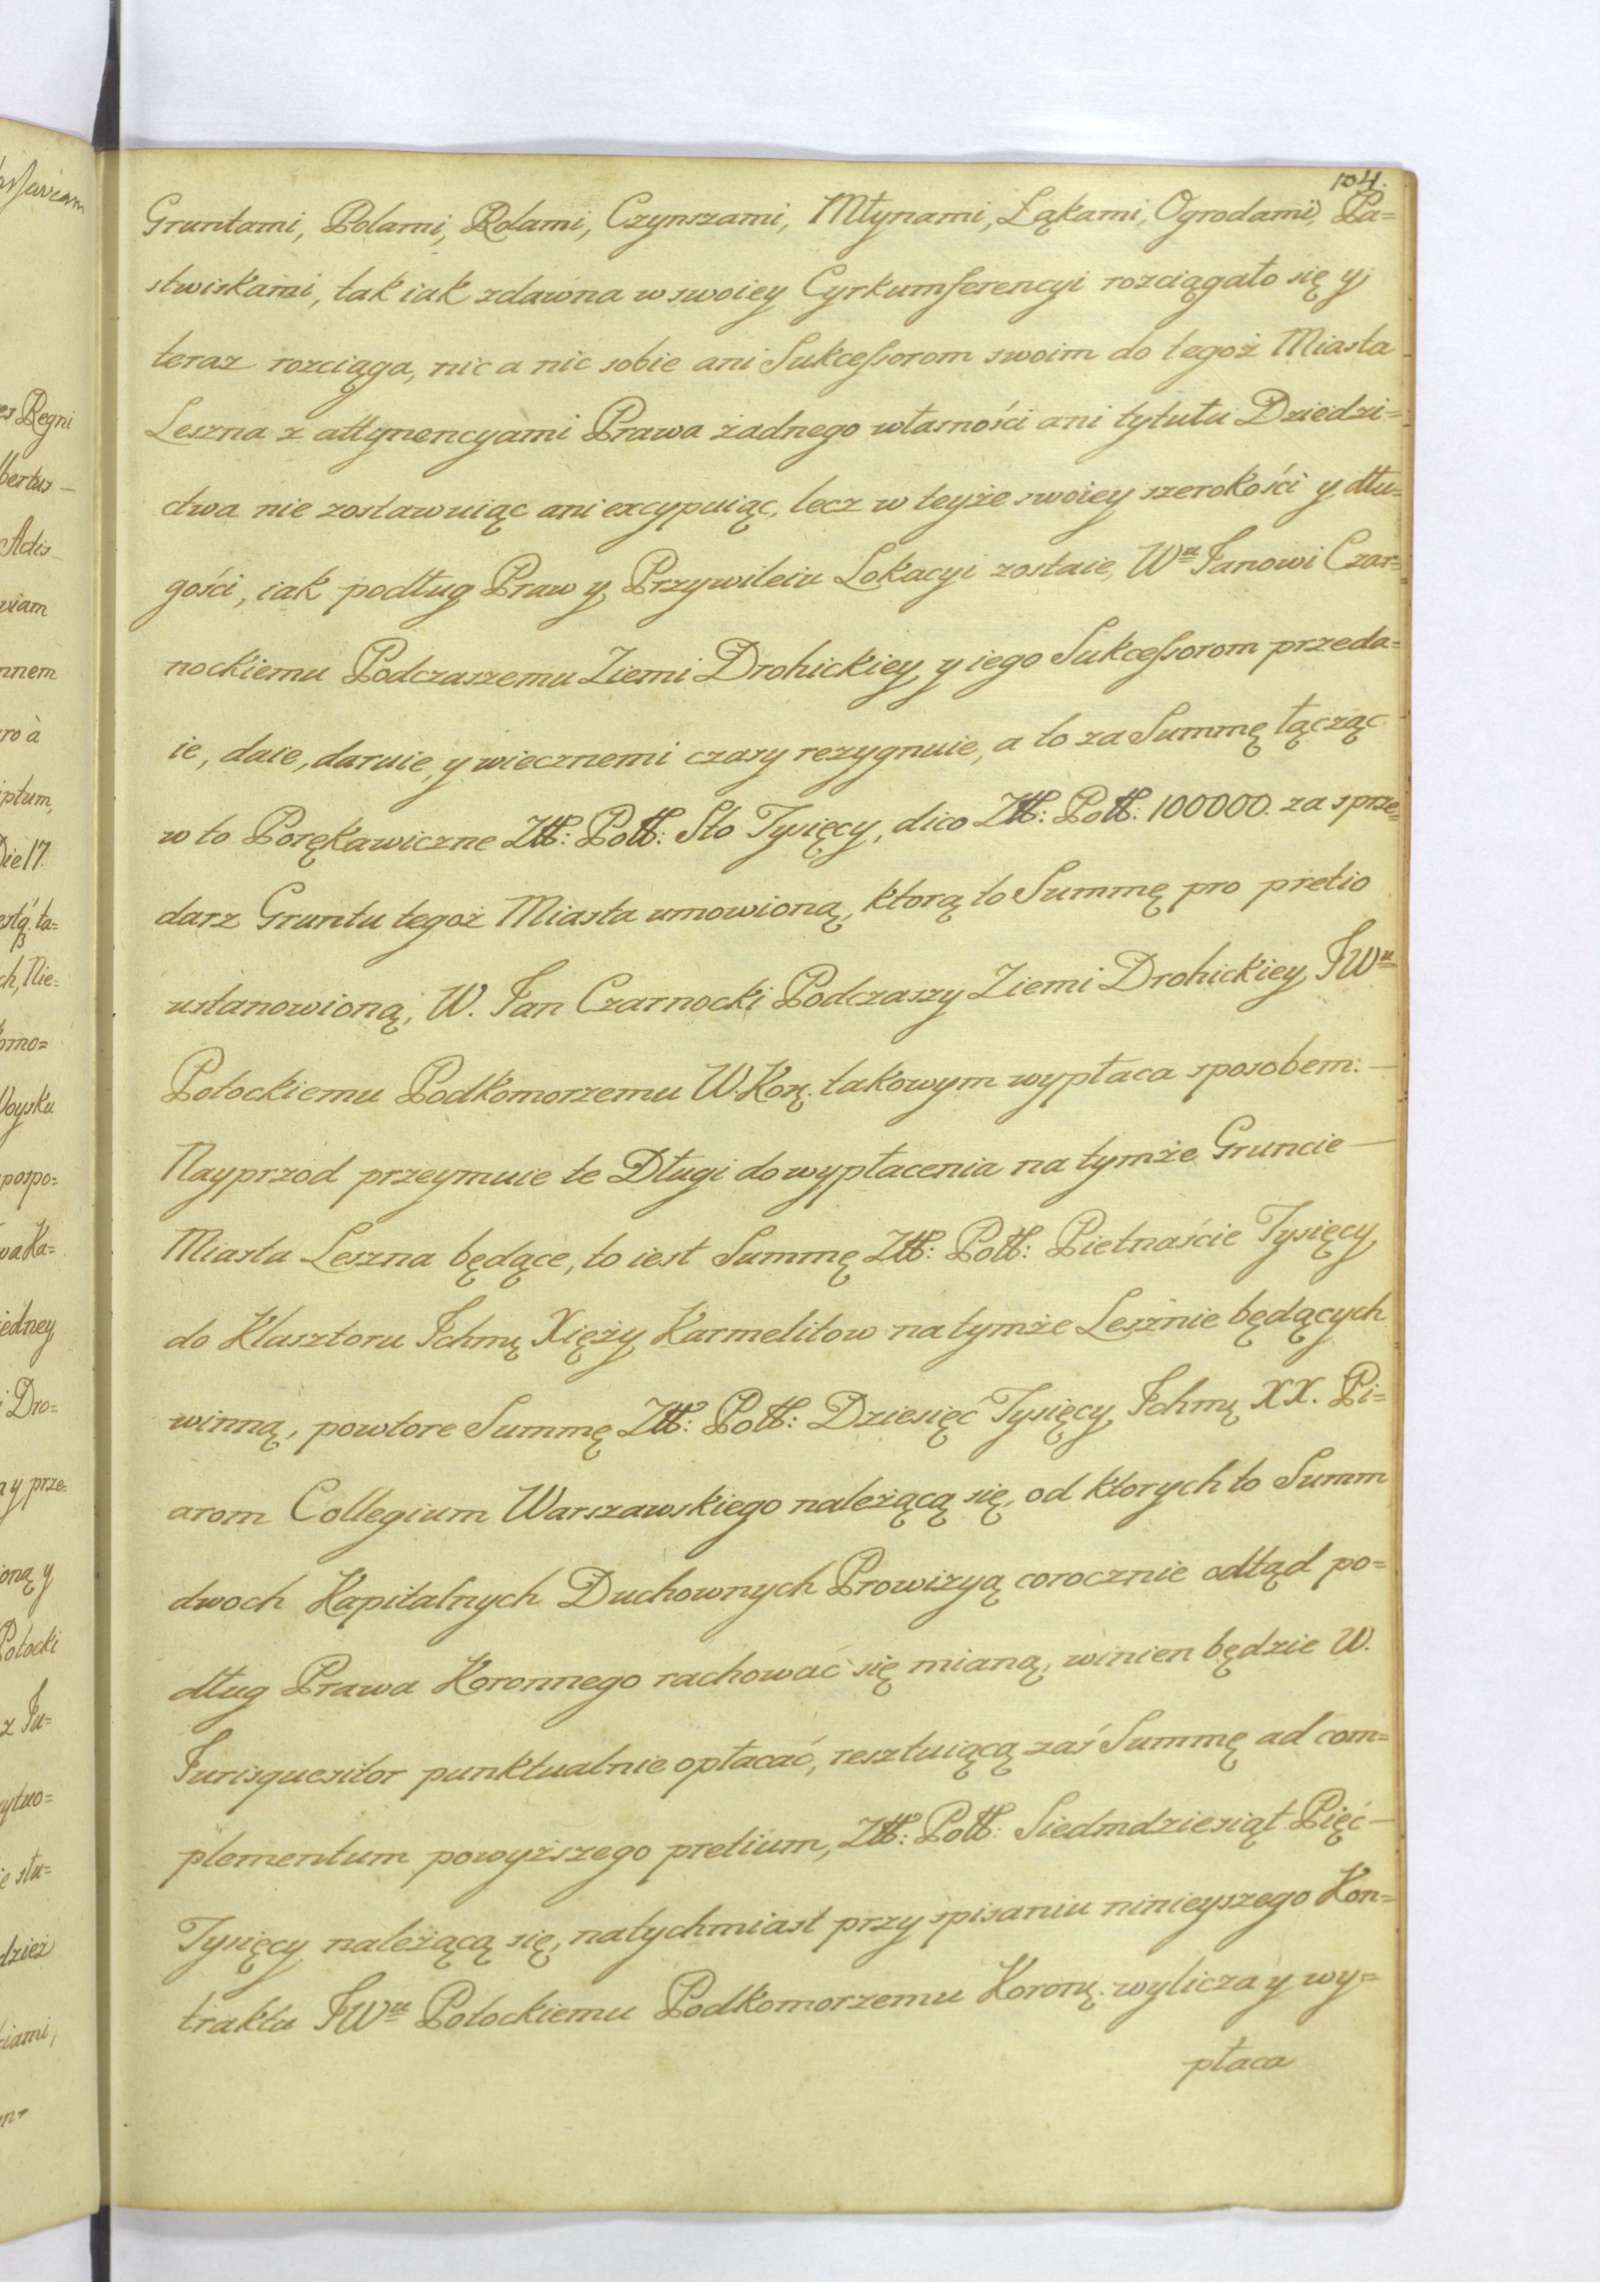 104.
Gruntami, Polami, Rolami, Czynszami, Młynami, Łąkami, Ogrodami, Pa=
stwiskami, tak iak zdawna w swoiey Cyrkumferencyi rozciągało się y
teraz rozciąga, nic a nic sobie ani Sukcessorom swoim do tegoż Miasta
Leszna z attynencyami Prawa zadnego własności ani tytułu Dziedzi=
ctwa nie zostawuiąc ani excypuiąc, lecz w teyże swoiey szerokości y dłu=
gości, iak podług Praw y Przywileiu Lokacyi zostaie, Wu Janowi Czar=
nockiemu Podczaszemu Ziemi Drohickiey y iego Sukcessorom przeda=
ie, daie, daruie, y wiecznemi czasy rezygnuie, a to za Summę łącząc
w to Porękawiczne Złł: Poll: Sto Tysięcy, dico Złł: Poll: 100000. za sprze=
darz Gruntu tegoż Miasta umowioną, ktorą to Summę pro pretio
ustanowioną, W. Jan Czarnocki Podczaszy Ziemi Drohickiey JWu
Potockiemu Podkomorzemu W. Korę. takowym wypłaca sposobem: —
Nayprzod przeymuie te Długi do wypłacenia na tymże Gruncie —
Miasta Leszna będące, to iest Summę Złł: Poll: Pietnaście Tysięcy
do Klasztoru Ichmę Xięży Karmelitow na tymże Lesznie będących
winną, powtore Summę Złł: Poll: Dziesięć Tysięcy Ichmę XX. Pi=
arom Collegium Warszawskiego należącą się, od ktorych to Summ
dwoch Kapitalnych Duchownych Prowizyą corocznie odtąd po=
dług Prawa Koronnego rachować się mianą, winien będzie W.
Jurisquesitor punktualnie opłacać, resztuiącą zaś Summę ad com=
plementum powyższego pretium, Złł: Poll: Siedmdziesiąt Pięć —
Tysięcy należącą się, natychmiast przy spisaniu ninieyszego Kon=
traktu JWu Potockiemu Podkomorzemu Koronę. wylicza y wy=
płaca